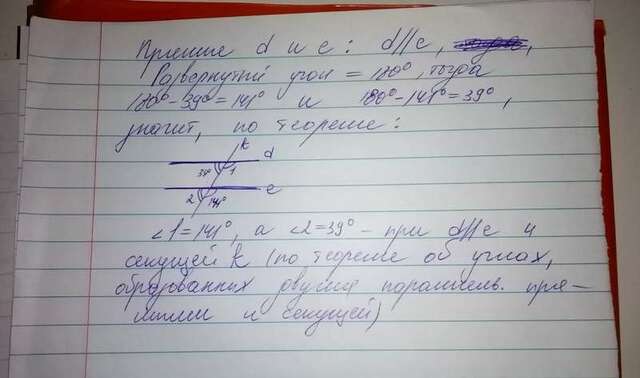 Прямые d и e: d||e,
Развернутый угол = 180°, тогда
180°-39°=141° и 180°-141°=39°,
значит, по теореме:
k
d
39° 1
e
2 141°
∠1=141°, а ∠2=39° - при d||e и
секущей k (по теореме об углах,
образованных двумя параллель. пря-
мыми и секущей)